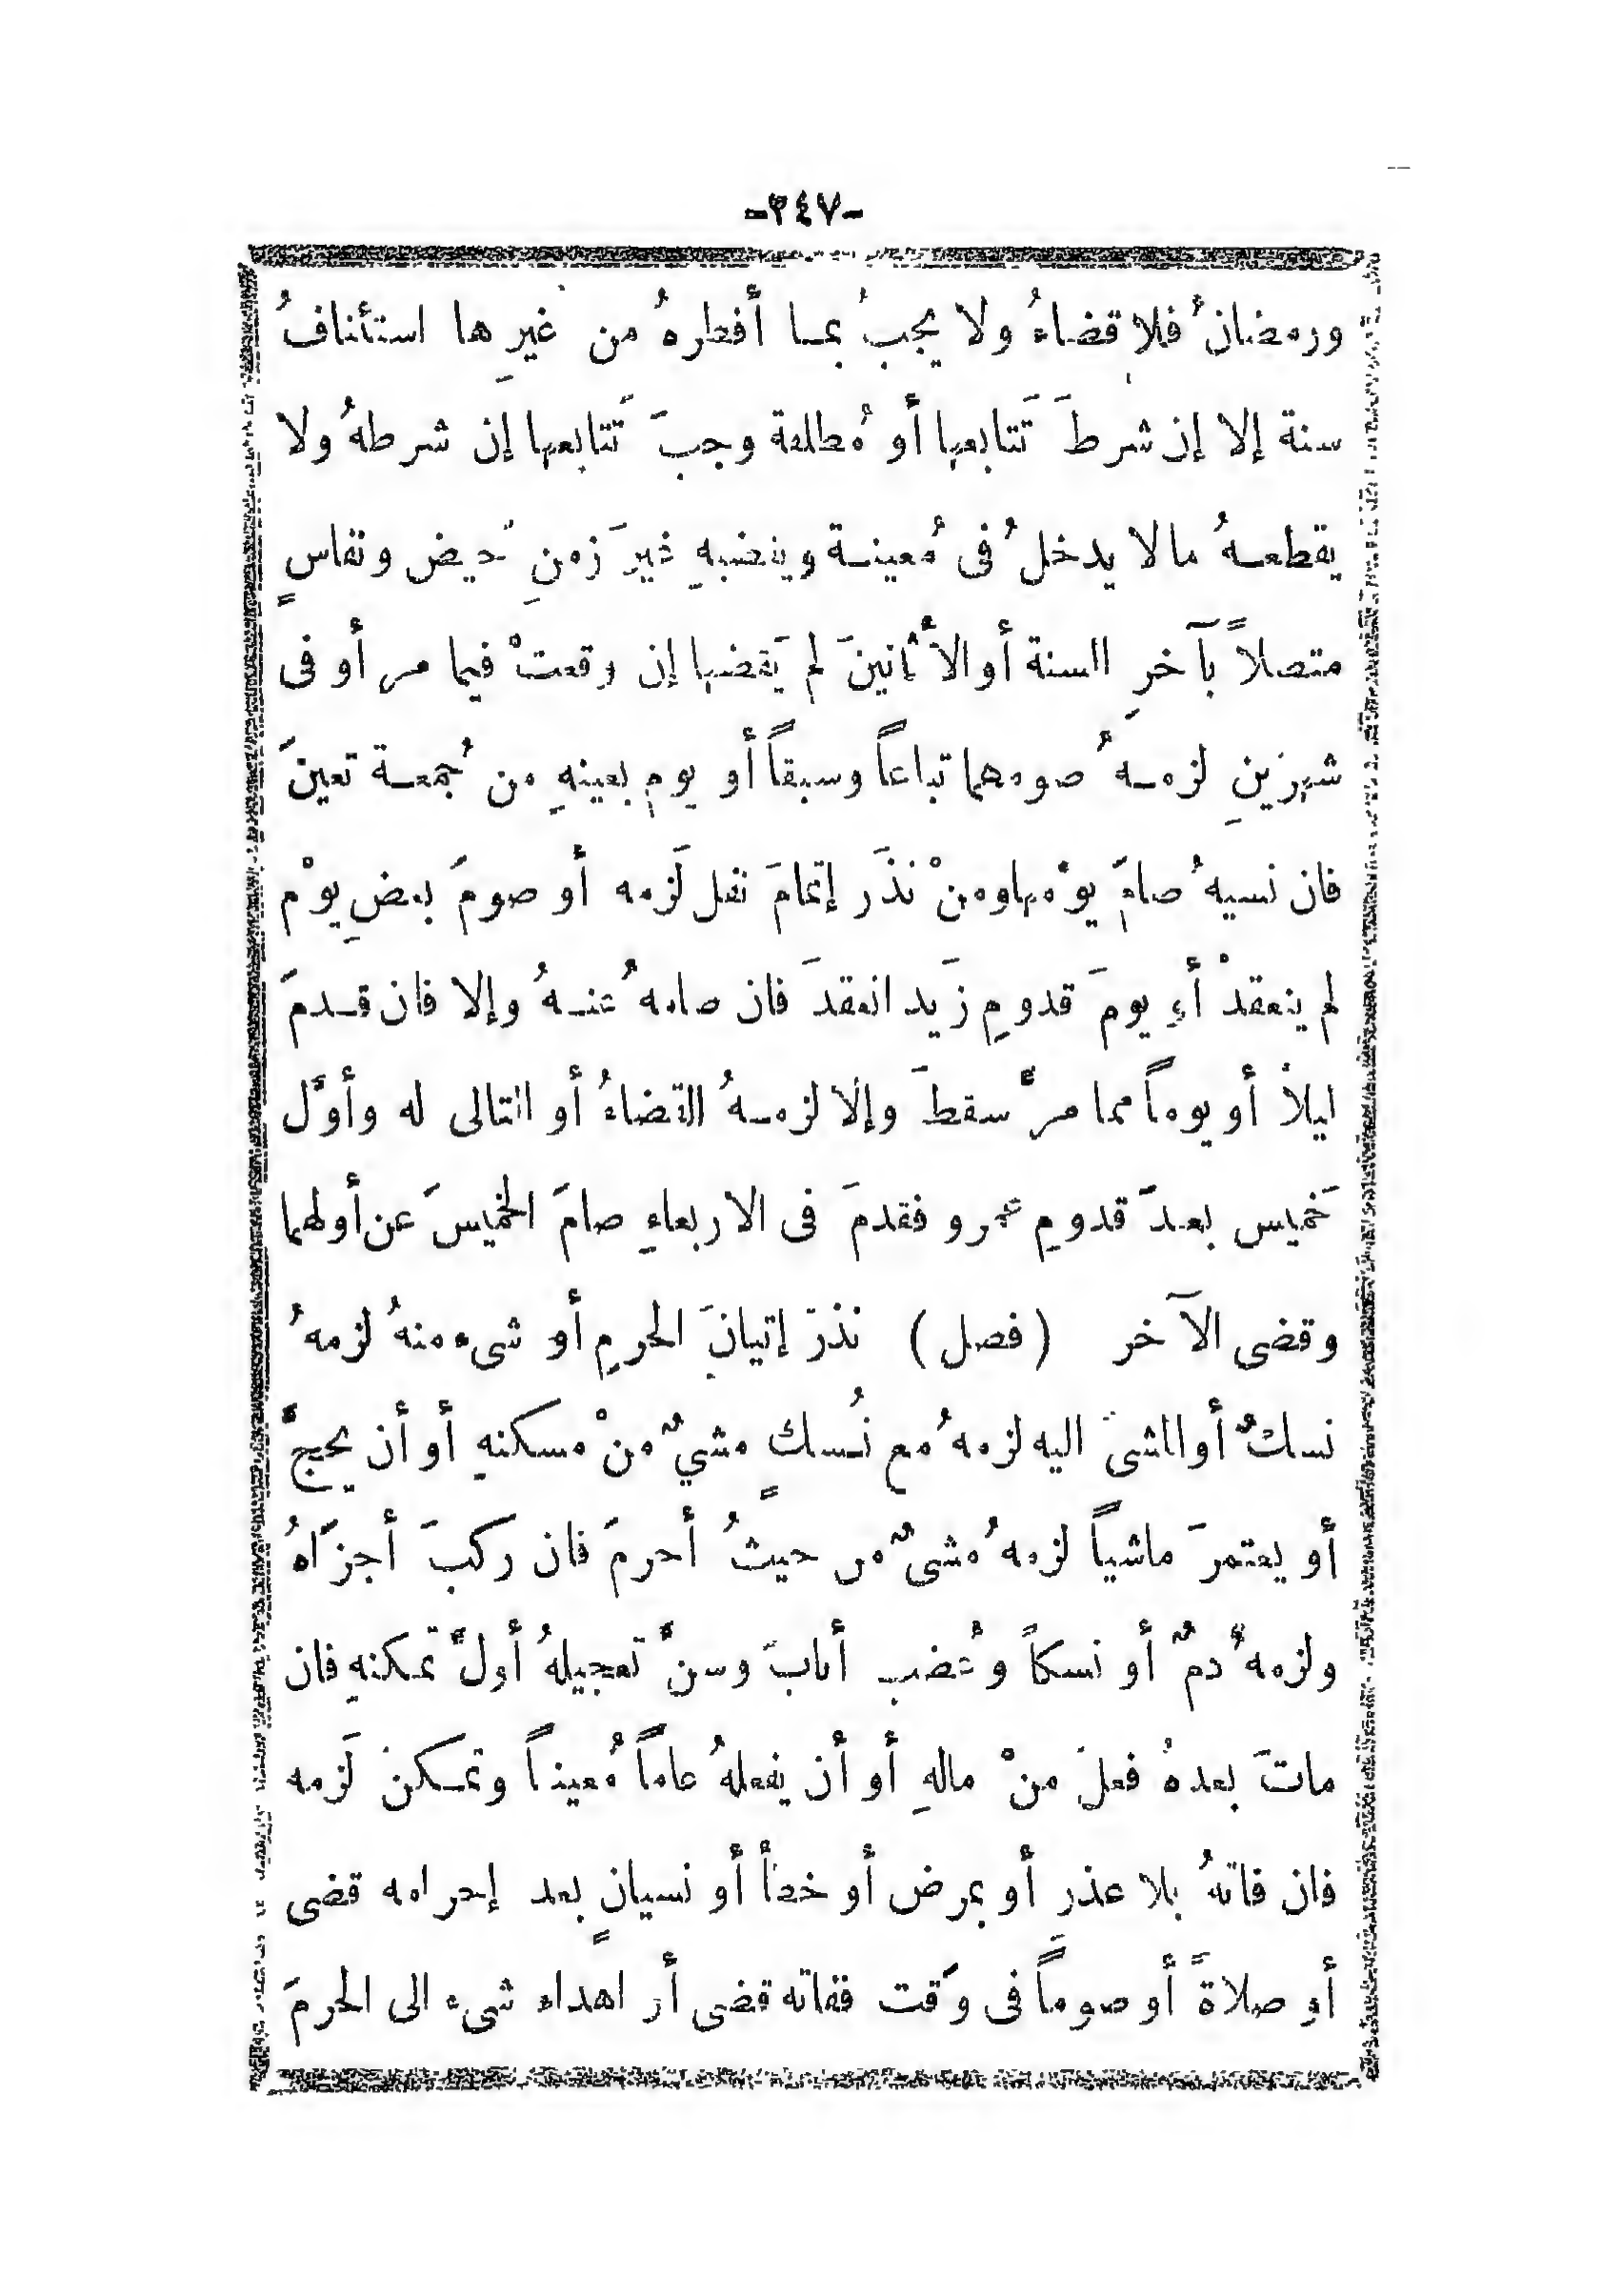 -٣٤٧-
ورمضانُ فلا قضاءُ ولا يجبُ بمـا أفطرهُ من غيرِها استئنافُ
سنة إلا إن شرطَ تَتابعها أو مُطلقة وجبَ تَتابعها إن شرطهُ ولا
يقطعـهُ مالا يدخلُ فى مُعينـة ويقضيهِ غيرَ زمنِ حيض ونفاسٍ
متصلاً بآخرِ السنة أوالأَثانينَ لم يَقضها إن وقعتْ فيما مر أو فى
شهرينِ لزمـهُ صومهما تباعاً وسبقاً أو يومٍ بعينهِ من جُمعـة تعينَ
فان نسيهُ صامَ يوْمهاومنْ نذَر إتمامَ نفل لَزمه أو صومَ بعضِ يوْم
لم ينعقدْ أو يومَ قدومِ زَيد انعقدَ فان صامهُ عنـهُ وإلا فان قـدمَ
ليلاً أو يوماً مما مرَّ سقطَ وإلا لزمـهُ القضاءُ أو التالى له وأوَّل
خَميس بعدَ قدومِ عمرو فقدمَ فى الاربعاءِ صامَ الخميسَ عن أولهما
وقضى الآخر (فصل) نذرَ إتيانَ الحرمِ أو شىء منهُ لزمهُ
نسكٌ أوالمشىَ اليه لزمهُ مع نُسكٍ مشيٌ منْ مسكنهِ أو أن يحجَّ
أو يعتمرَ ماشياً لزمهُ مشىٌ من حيثُ أحرمَ فان ركبَ أجزَاهُ
ولزمهُ دمٌ أو نسكاً وعُضب أنابَ وسنَّ تعجيلهُ أولَّ تمكنهِ فان
ماتَ بعدهُ فعلَ منْ مالهِ أو أن يفعلهُ عاماً مُعيناً وتمـكنَ لَزمه
فان فاتهُ بلا عذر أو بمرض أو خطأ أو نسيانٍ بعد إحرامه قضى
أو صلاةً أو صوماً فى وَقت ففاته قضى أو اهداء شىء الى الحرمَ